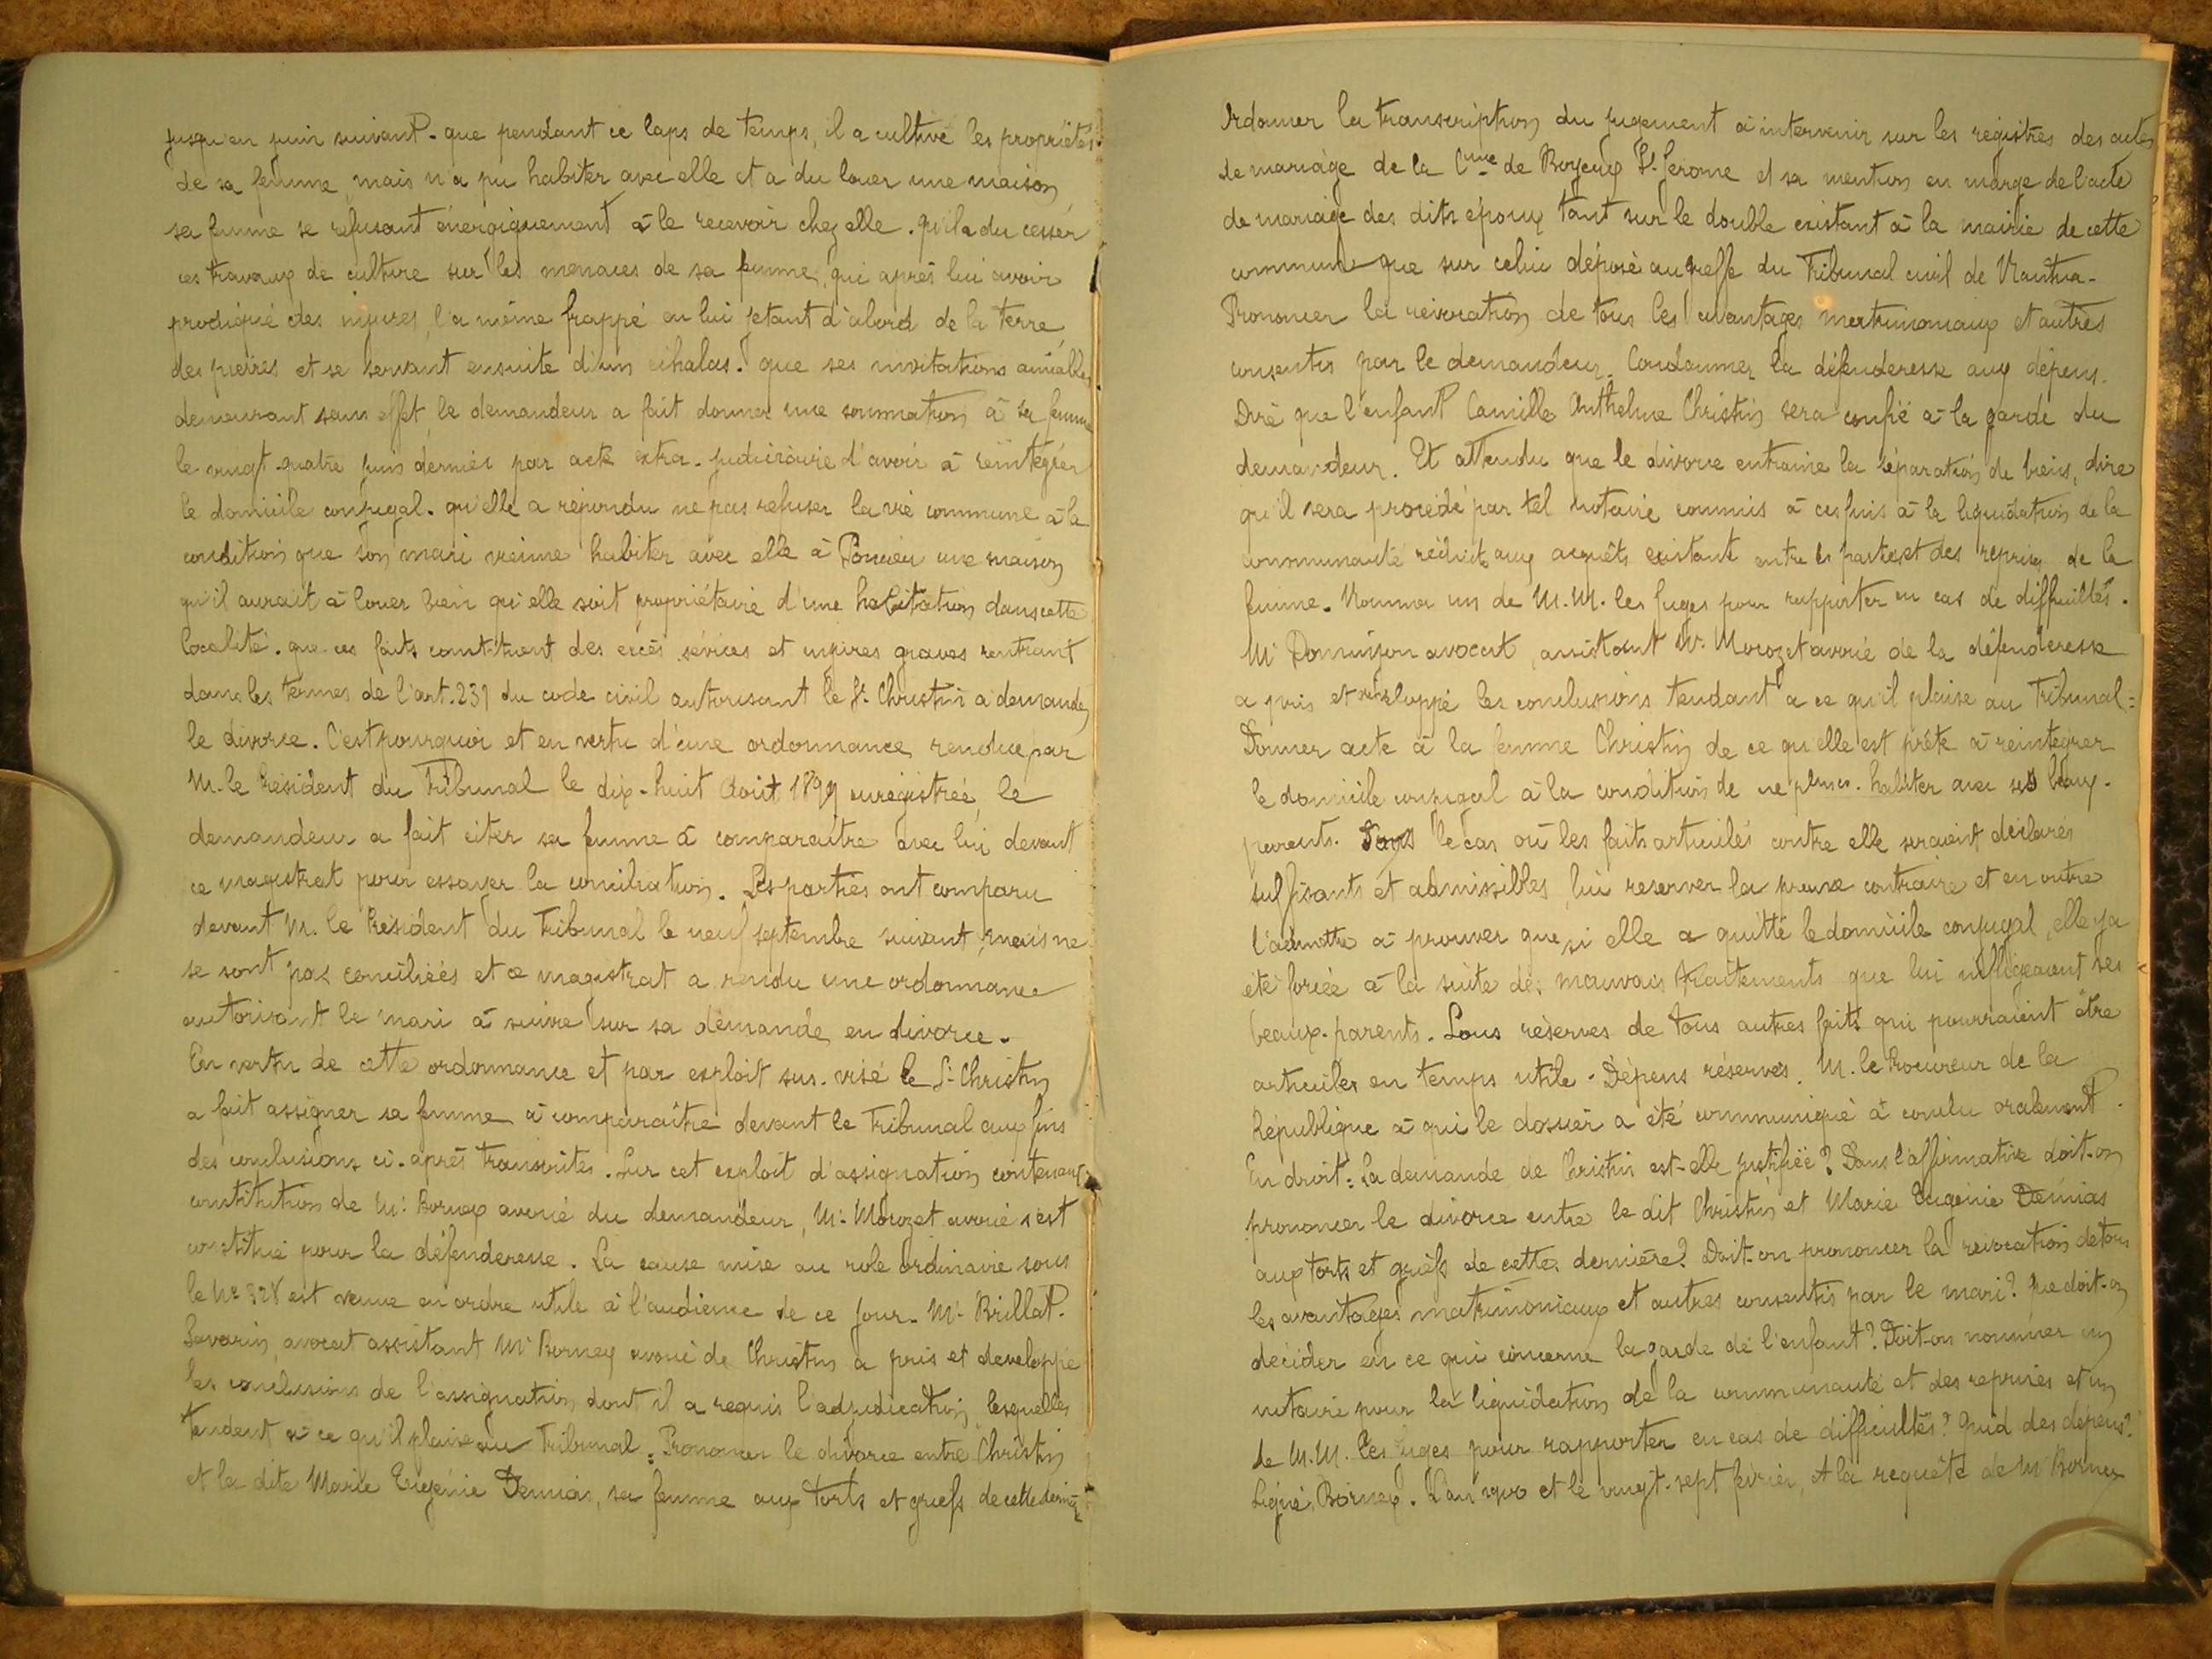 jusqu'en juin suivant - que pendant ce laps de temps, il a cultivé les propriétés
de sa femme mais n'a pu habiter avec elle et a du louer une maison,
sa femme se refusant énergiquement à le recevoir chez elle. qu'il a du cesser
ces travaux de culture sur les menaces de sa femme, qui après lui avoir
prodigué des injures, l'a même frappé en lui jetant d'abord de la terre,
des pierres et se servant ensuite d'un échalas. que ses invitations amiables
demeurant sans effet, le demandeur a fait donner une sommation à sa femme
le vingt-quatre juin dernier par acte extra-judiciaire d'avoir à réintégrer
le domicile conjugal. qu'elle a répondu ne pas refuser la vie commune à la
condition que son mari vienne habiter avec elle à Poncieu une maison
qu'il aurait à louer bien qu'elle soit propriétaire d'une habitation dans cette
localité. que ces faits constituent des excès sévices et injures graves rentrant
dans les termes de l'art. 231 du code civil autorisant le Sr Christin à demander
le divorce. C'est pourquoi et en vertu d'une ordonnance rendue par
M. le Président du Tribunal le dix-huit Août 1899 enregistrée, le
demandeur a fait citer sa femme à comparaître avec lui devant
ce magistrat pour essayer la conciliation. Les parties ont comparu
devant M. le Président du Tribunal le neuf septembre suivant, mais ne
se sont pas conciliées et ce magistrat a rendu une ordonnance
autorisant le mari à suivre sur sa demande en divorce.
En vertu de cette ordonnance et par exploit sus-visé le Sr Christin
a fait assigner sa femme à comparaître devant le Tribunal aux fins
des conclusions ci-après transcrites. Sur cet exploit d'assignation contenant
constitution de Me Borney avoué du demandeur, Me Morozet avoué s'est
constitué pour la défenderesse. La cause mise au role ordinaire sous
le No 328 est venue en ordre utile à l'audience de ce jour. Me Brillat-
Savarin, avocat assistant Me Borney avoué de Christin a pris et developpé
les conclusions de l'assignation dont il a requis l'adjudication, lesquelles
tendent à ce qu'il plaise au Tribunal: Prononcer le divorce entre Christin
et la dite Marie Eugénie Demias, sa femme aux torts et griefs de cette dernière
Ordonner la transcription du jugement à intervenir sur les registres des actes
de mariage de la Cune de Boyeux St Jerome et sa mention en marge de l'acte
de mariage des dits époux tant sur le double existant à la mairie de cette
commune que sur celui déposé au greffe du Tribunal civil de Nantua.
Prononcer la révocation de tous les avantages matrimoniaux et autres
consentis par le demandeur. Condamner la défenderesse aux dépens.
Dire que l'enfant Camille Anthelme Christin sera confié à la garde du
demandeur. Et attendu que le divorce entraine la séparation de biens, dire
qu'il sera procédé par tel notaire commis à ces fins à la liquidation de la
communauté réduite aux acquêts existant entre les parties et des reprises de la
femme. Nommer un de M.M. les Juges pour rapporter en cas de difficultés.
Me avocat, assistant Me Morozet avoué de la défenderesse
a pris et développé les conclusions tendant à ce qu'il plaise au Tribunal:
Donner acte à la femme Christin de ce qu'elle est prête à réintégrer
le domicile conjugal à la condition de ne plus habiter avec ses beaux-
parents. Dans le cas où les faits articulés contre elle seraient déclarés
suffisants et admissibles, lui reserver la preuve contraire et en outre
l'admettre à prouver que si elle a quitté le domicile conjugal, elle y a
été forcée à la suite des mauvais traitements que lui infligeaient ses
beaux-parents. Sous réserves de tous autres faits qui pourraient être
articulés en temps utile. Dépens réservés. M. le Procureur de la
République à qui le dossier a été communiqué à conclu oralement.
En droit: La demande de Christin est-elle justifiée? Dans l'affirmative doit-on
prononcer le divorce entre le dit Christin et Marie Eugénie Demias
aux torts et griefs de cette dernière? Doit-on prononcer la révocation de tous
les avantages matrimoniaux et autres consentis par le mari? Que doit-on
décider en ce qui concerne la garde de l'enfant? Doit-on nommer un
notaire pour la liquidation de la communauté et des reprises et un
de M.M. les Juges pour rapporter en cas de difficultés? Quid des dépens?
Signé, Borney. L'an 1900 et le vingt-sept février, A la requête de Me Borney